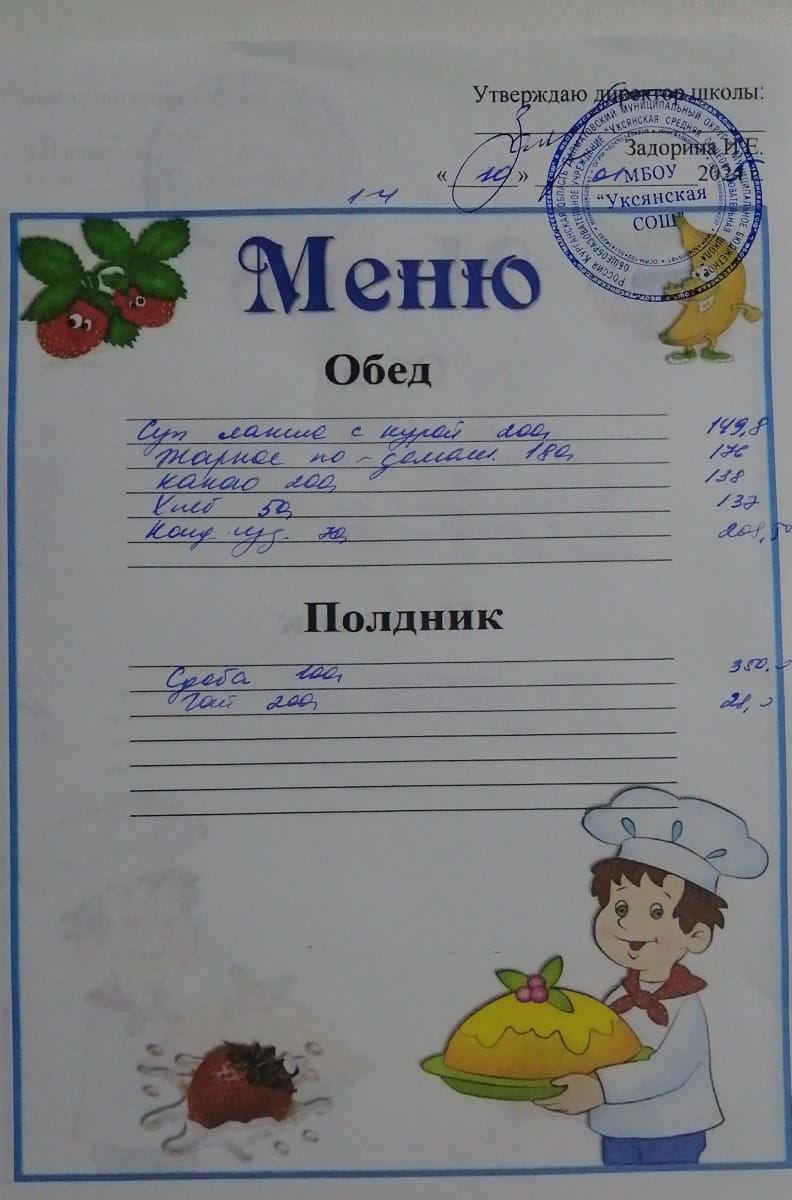 Утверждаю директор школы:
Задорина И.Е.
« 10 » 01 2024
МБОУ
"Уксянская
СОШ"
1-4
Меню
Обед
Суп лапша с курой 200 149,8
Жаркое по-домаш. 180 176
Какао 200 138
Хлеб 50 137
Конд. изд. 208,50
Полдник
Сдоба 100 350.0
Чай 200 28,0